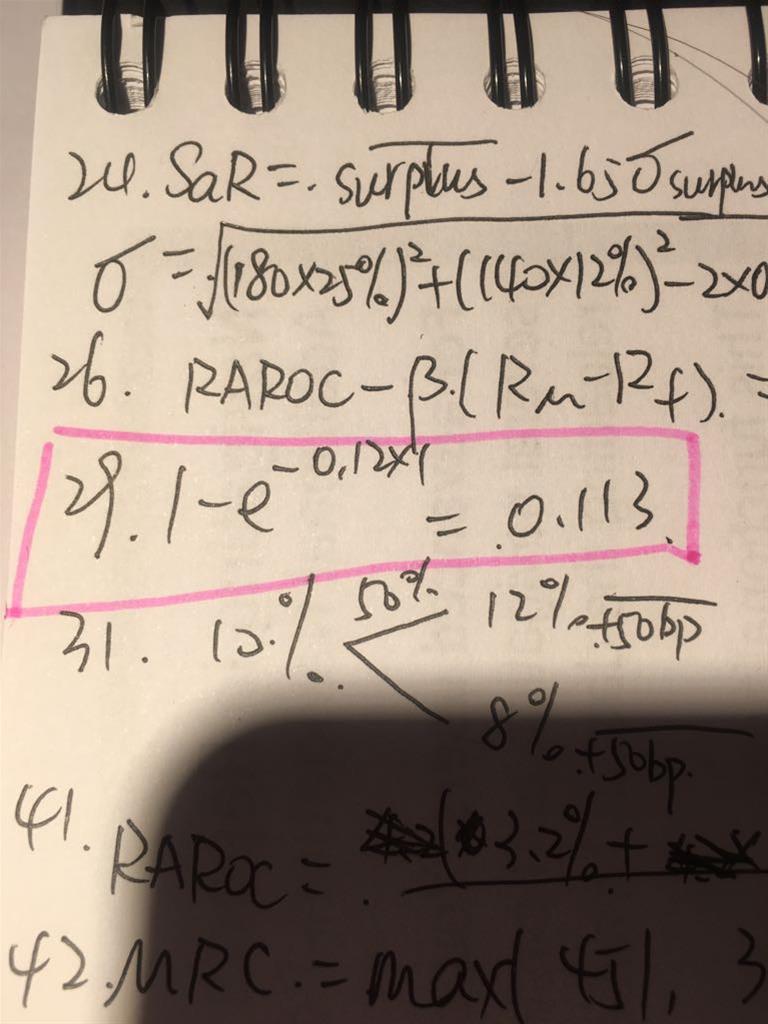 24. SaR = surplus - 1.65 σ surplus
σ = √(180×25%)² + (140×12%)² - 2×0
26. RAROC - β.(Rm - Rf). =
29. 1 - e^-0.12×1 = 0.113.
31. 10% 50% 12% +50bp
8% +50bp.
41. RAROC = (3.2% +
42. MRC. = max( 451, 3